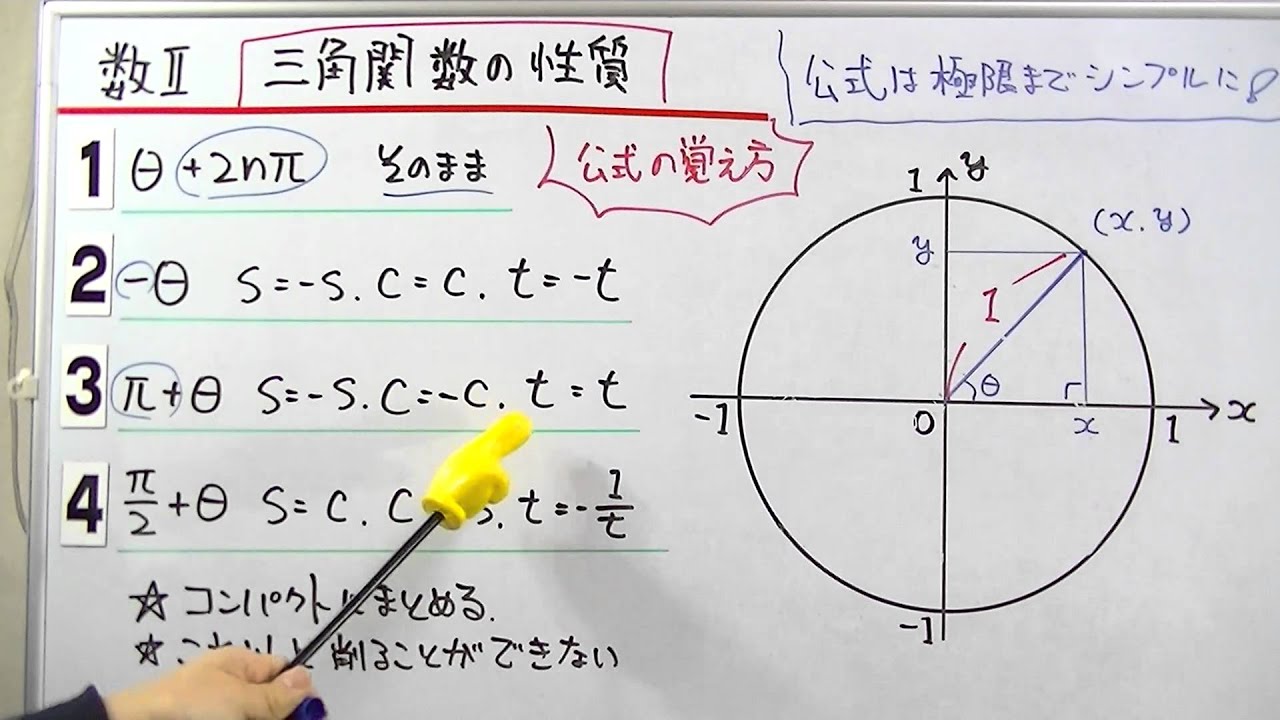 数Ⅱ 三角関数の性質
公式は極限までシンプルに!
1 θ+2nπ そのまま
公式の覚え方
2 -θ S=-S. C=C. t=-t
3 π+θ S=-S. C=-C. t=t
4 π/2+θ S=C. C S. t=-1/t
☆コンパクトにまとめる.
☆ 削ることができない
1 y
(x.y)
y
1
θ
-1 0 x 1 x
-1